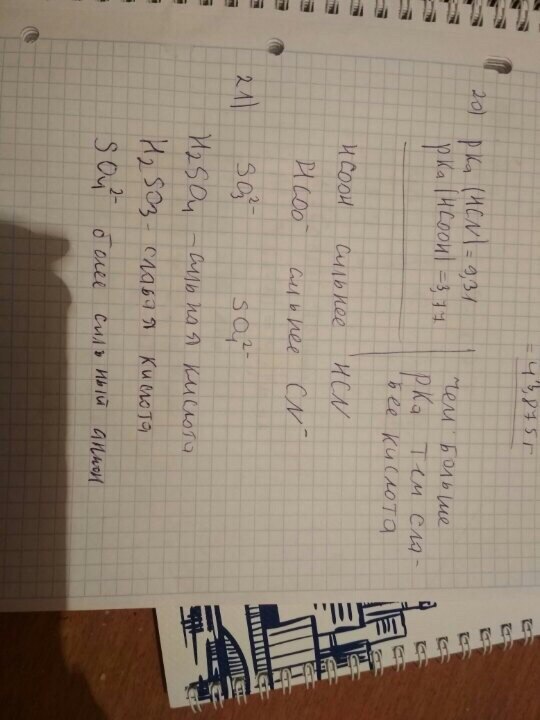 = 43,875 г
20) pKa (HCN) = 9,31
pKa (HCOOH) = 3,77
чем больше
pKa тем сла-
бее кислота
HCOOH сильнее HCN
HCOO⁻ сильнее CN⁻
21) SO₃²⁻ SO₄²⁻
H₂SO₄ - сильная кислота
H₂SO₃ - слабая кислота
SO₄²⁻ более сильный анион